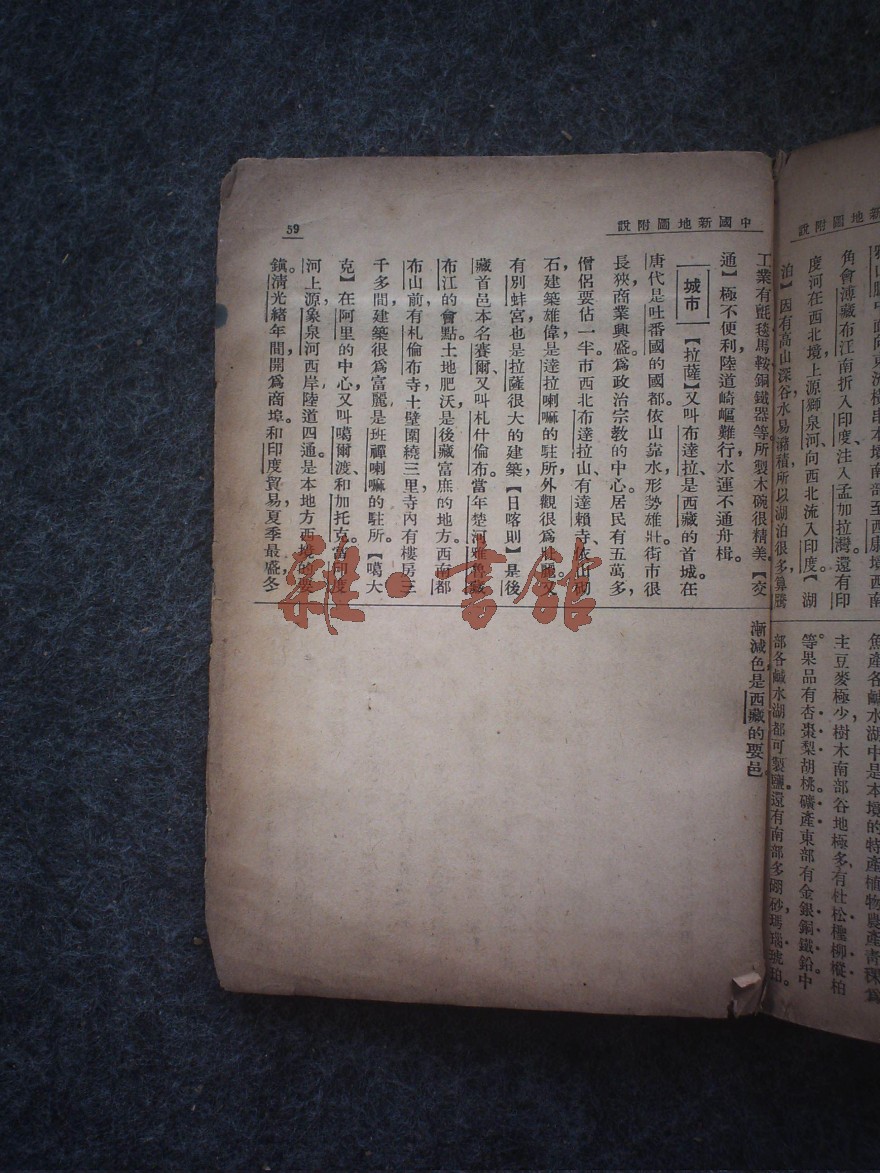 中國新地圖附說
角會薄藏布江南折入印度、注入孟加拉灣。還有印
度河在西北境上源獅泉河、向西北流入印度。【湖
泊】因有高山深谷、水易瀦積、所以湖泊很多、算騰
魚產各鹹水湖中、是本境的特產。植物農產青稞爲
主、豆麥極少、樹木南部谷地極多、有杜松檉柳樅柏
等。果品有杏棗梨胡桃。礦產東部有金銀銅鐵鉛、中
部各鹹水湖都可製鹽。還有南部多硼砂瑪瑙琥珀。
中國新地圖附說
59
工業有氈毯馬鞍銅鐵器等、所製木碗很精美。【交
通】極不便利、陸道崎嶇難行、水運不通舟楫。
城市
【拉薩】又叫布達拉、是西藏的首城。在
唐代是吐番國的國都。依山靠水、形勢雄壯、街市很
長狹、商業興盛、爲政治宗教的中心。居民有五萬多、
僧侶要佔一半。市西北布達拉山、有達賴寺、依山砌
石、建築雄偉、是達拉喇嘛的駐所、外觀很爲壯麗。又
有別蚌宮、也是拉薩很大的建築。【日喀則】是後
藏首邑、本名賽爾、又叫札什倫布。當年楚河雅魯藏
布江的會點。土地肥沃、是後藏富庶的地方。西南都
布山前、有札倫布寺、土壁圍繞三里、寺內有樓房三
千多間、建築很爲富麗、是班禪喇嘛的駐所。【噶大
克】在阿里的中心、又叫噶爾渡、和加托克。當印度
河上源象泉河西岸、陸道四通。是本地方西境的要
鎮。清光緒年間、開爲商埠。和印度貿易、夏季最盛、冬
漸減色、是西藏的要邑。
雜·書館